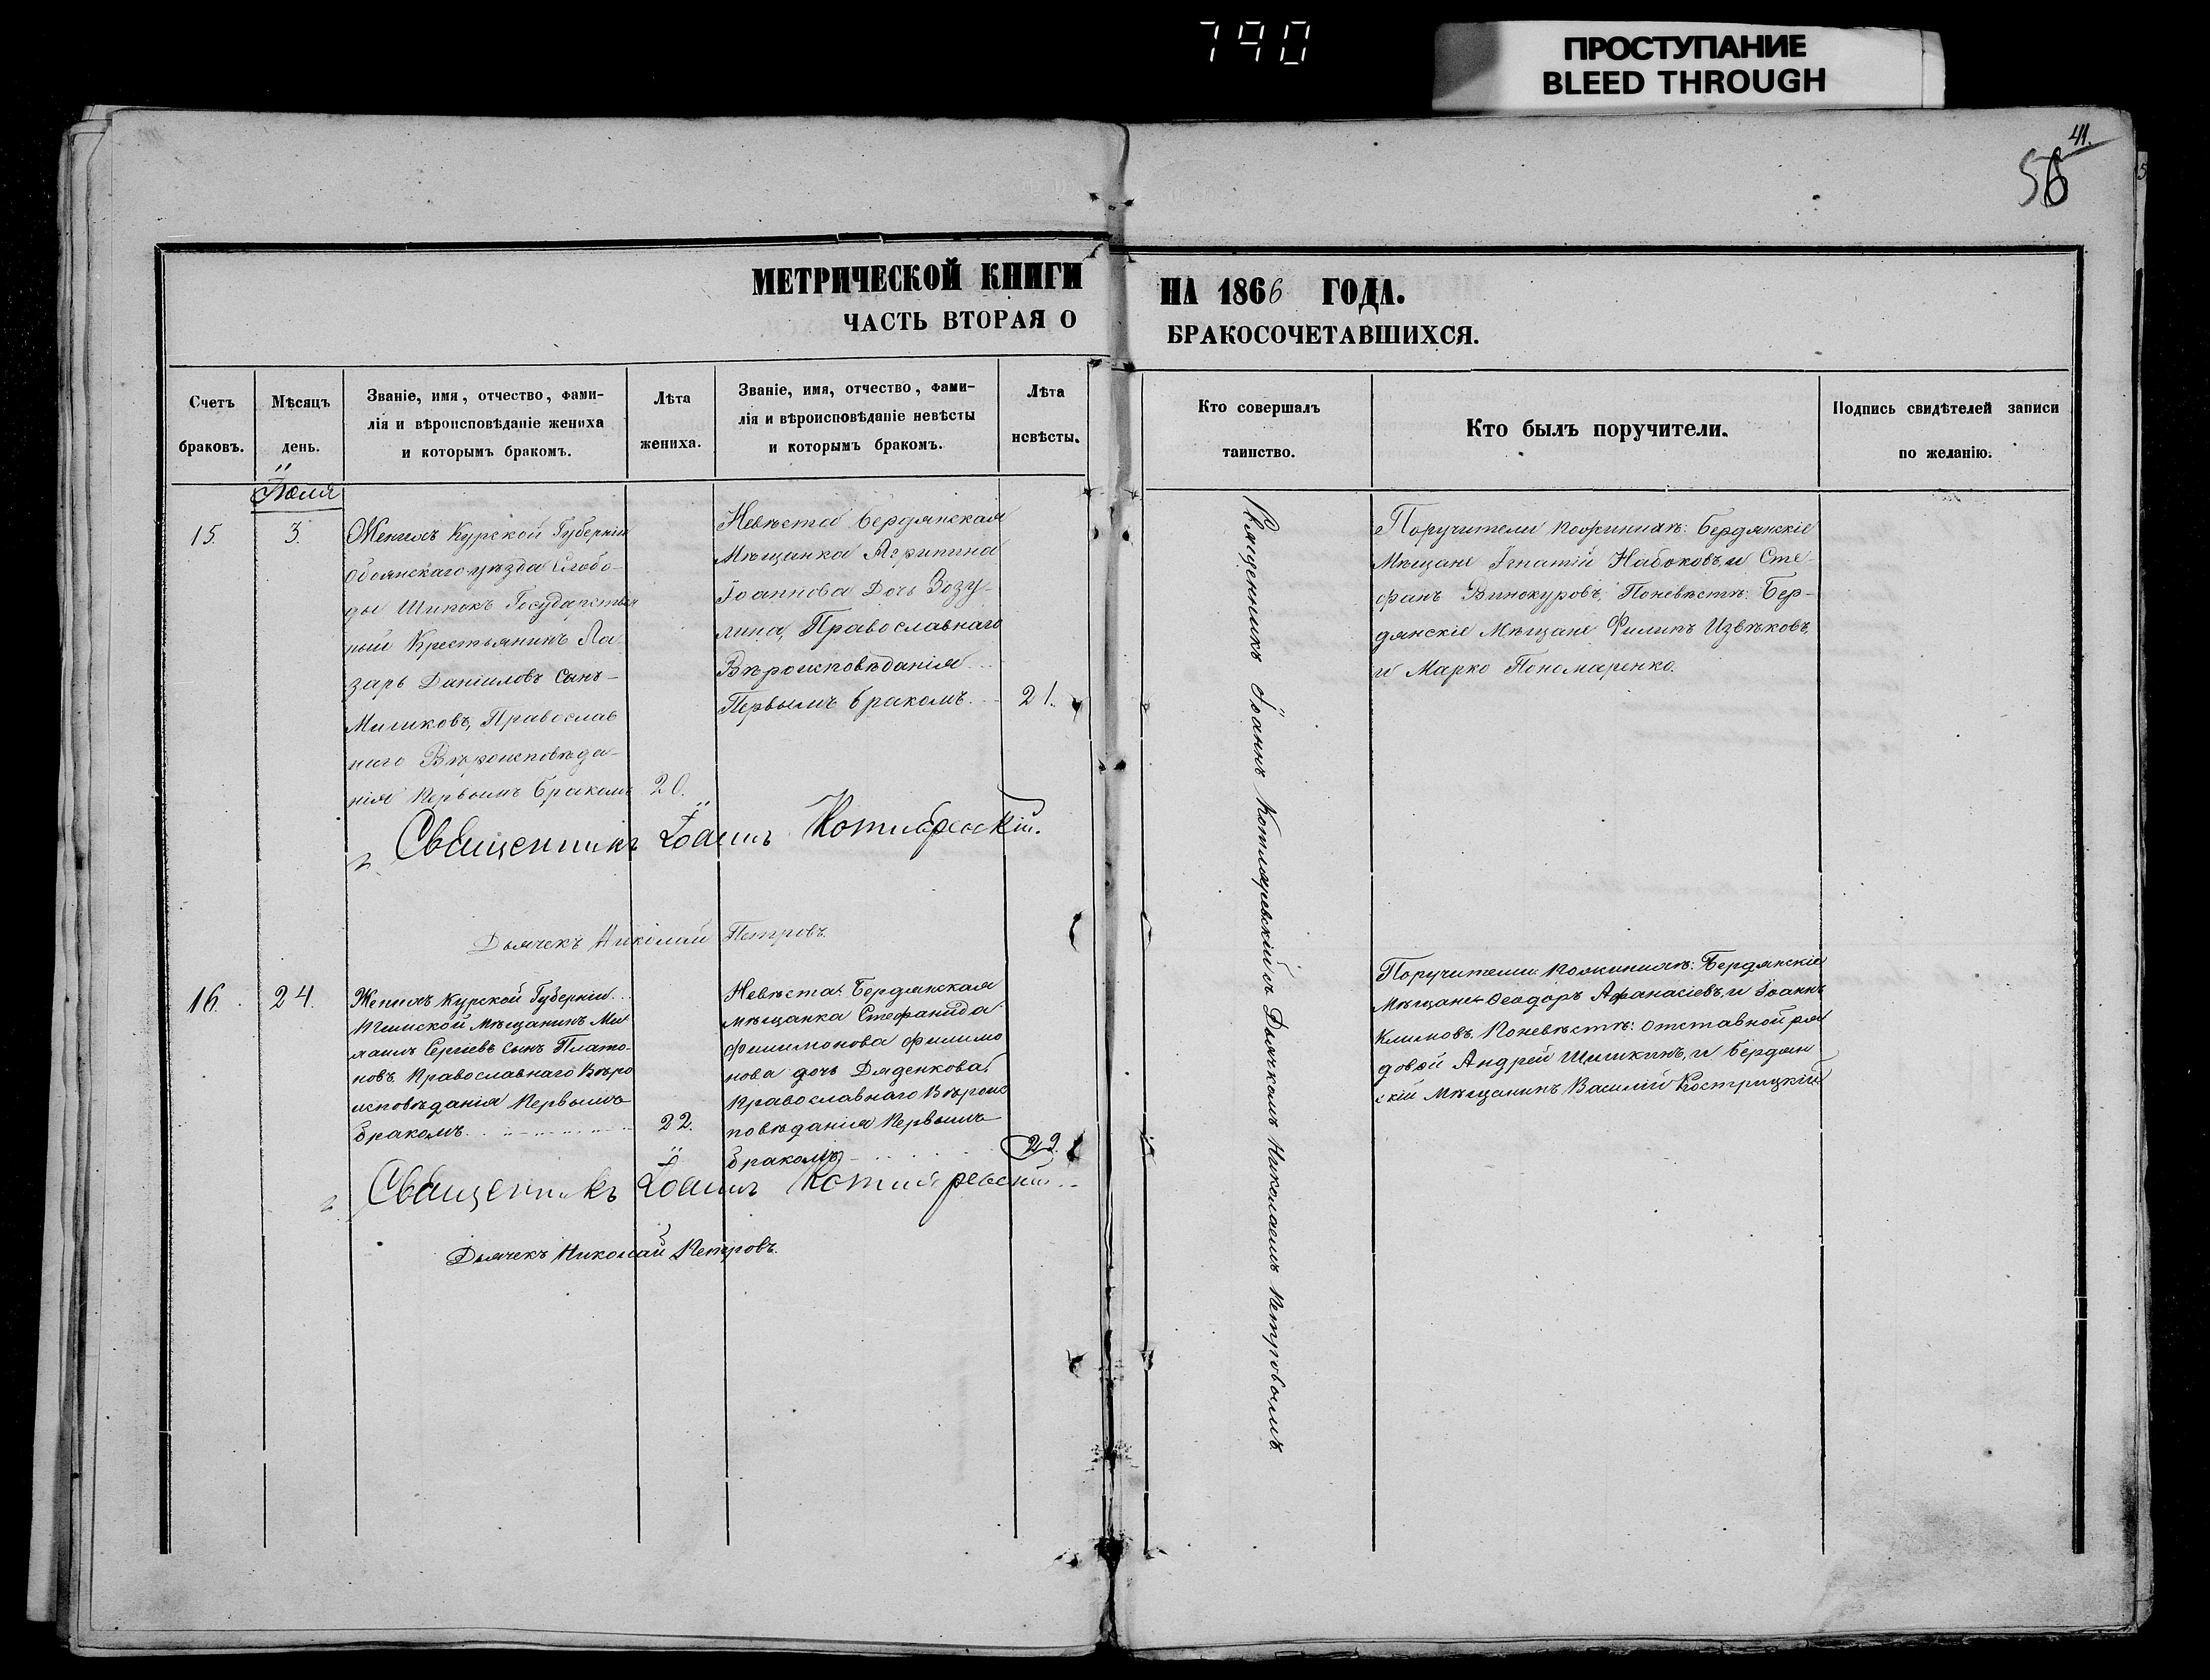 790
ПРОСТУПАНИЕ
BLEED THROUGH
41.
56
МЕТРИЧЕСКОЙ КНИГИ НА 1866 ГОДА.
ЧАСТЬ ВТОРАЯ О БРАКОСОЧЕТАВШИХСЯ.
Счетъ
браковъ.
Мѣсяцъ
день.
Званіе, имя, отчество, фами-
лія и вѣроисповѣданіе жениха
и которымъ бракомъ.
Лѣта
жениха.
Званіе, имя, отчество, фами-
лія и вѣроисповѣданіе невѣсты
и которымъ бракомъ.
Лѣта
невѣсты.
Кто совершалъ
таинство.
Кто былъ поручители.
Подпись свидѣтелей записи
по желанію.
15.
3.
Женихъ Курской Губерніи
Обоянскаго уѣзда Слобо-
ды Шипокъ Государствен
ный Крестьянинъ Ла
зарь Даніиловъ Сынъ
Православ
наго Вѣроисповѣда-
нія Первымъ бракомъ
20.
Невѣста Бердянская
Мѣщанка Агрипина
Іоаннова Дочь Зозу-
лина, Православнаго
Вѣроисповѣданія
Первымъ бракомъ.
21.
Священникъ Іоаннъ Котляревскій съ Дьячкомъ Николаемъ Петровымъ
Поручители По Бердянскіе
Мѣщане Игнатій Набоковъ, и Сте-
фанъ Винокуровъ, Поневѣстѣ: Бер-
дянскіе Мѣщане Филипъ Извѣковъ,
и Марко Пономаренко.
Священникъ Іоаннъ Котляревскій.
Дьячекъ Николай Петровъ
16.
24.
Женихъ Курской Губерніи
Мѣщанинъ Ми
хаилъ Сергіевъ Сынъ Плато-
новъ Православнаго Вѣро
исповѣданія Первымъ
бракомъ
22.
Невѣста: Бердянская
мѣщанка Стефанида
Филимонова Филимо
нова дочь Дяденкова
Православнаго Вѣроис
повѣданія Первымъ
бракомъ
22.
Поручители Бердянскіе
Мѣщане Ѳеодоръ Афанасіевъ, и Іоаннъ
Климовъ. Поневѣстѣ: Отставной ря
довой Андрей Шишкинъ, и Бердян
скій Мѣщанинъ Василій Кострицкій
Священникъ Іоаннъ Котляревскій
Дьячекъ Николай Петровъ.